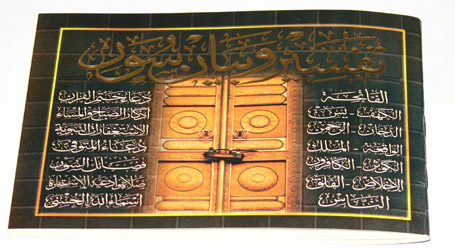 تفسير وبيان سور
الفاتحة
الكهف - يس
الدخان - الرحمن
الواقعة - الملك
الكوثر - الكافرون
الاخلاص - الفلق
الناس
دعاء ختم القرآن
أذكار الصباح والمساء
الاستغفارات النبوية
دعاء المتوفى
فضائل السور
صلاة وأدعية الاستخارة
اسماء الله الحسنى